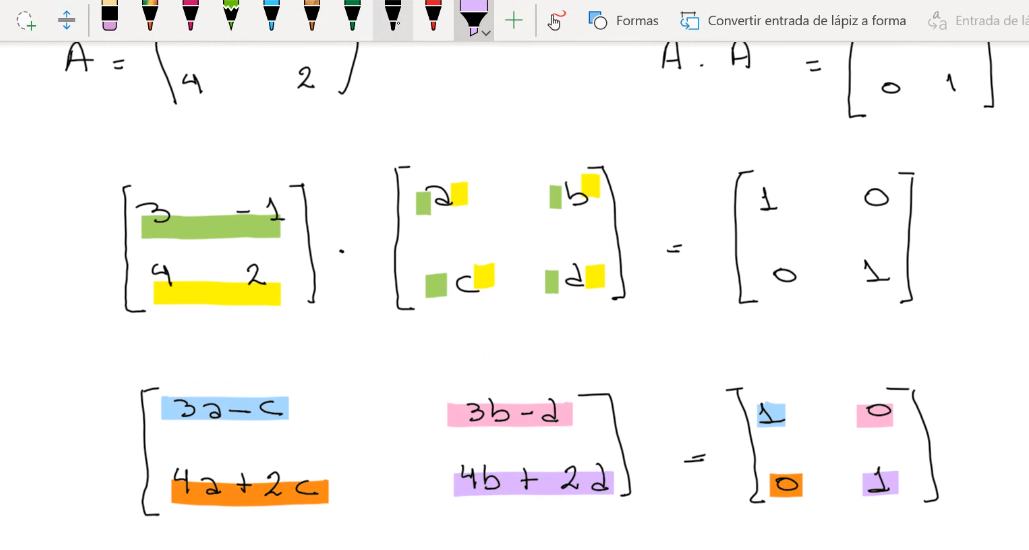 Formas Convertir entrada de lápiz a forma Entrada de lá
A = 4 2 A . A = 0 1
3 -1 a b 1 0
. =
4 2 c d 0 1
3a-c 3b-d 1 0
=
4a+2c 4b+2d 0 1